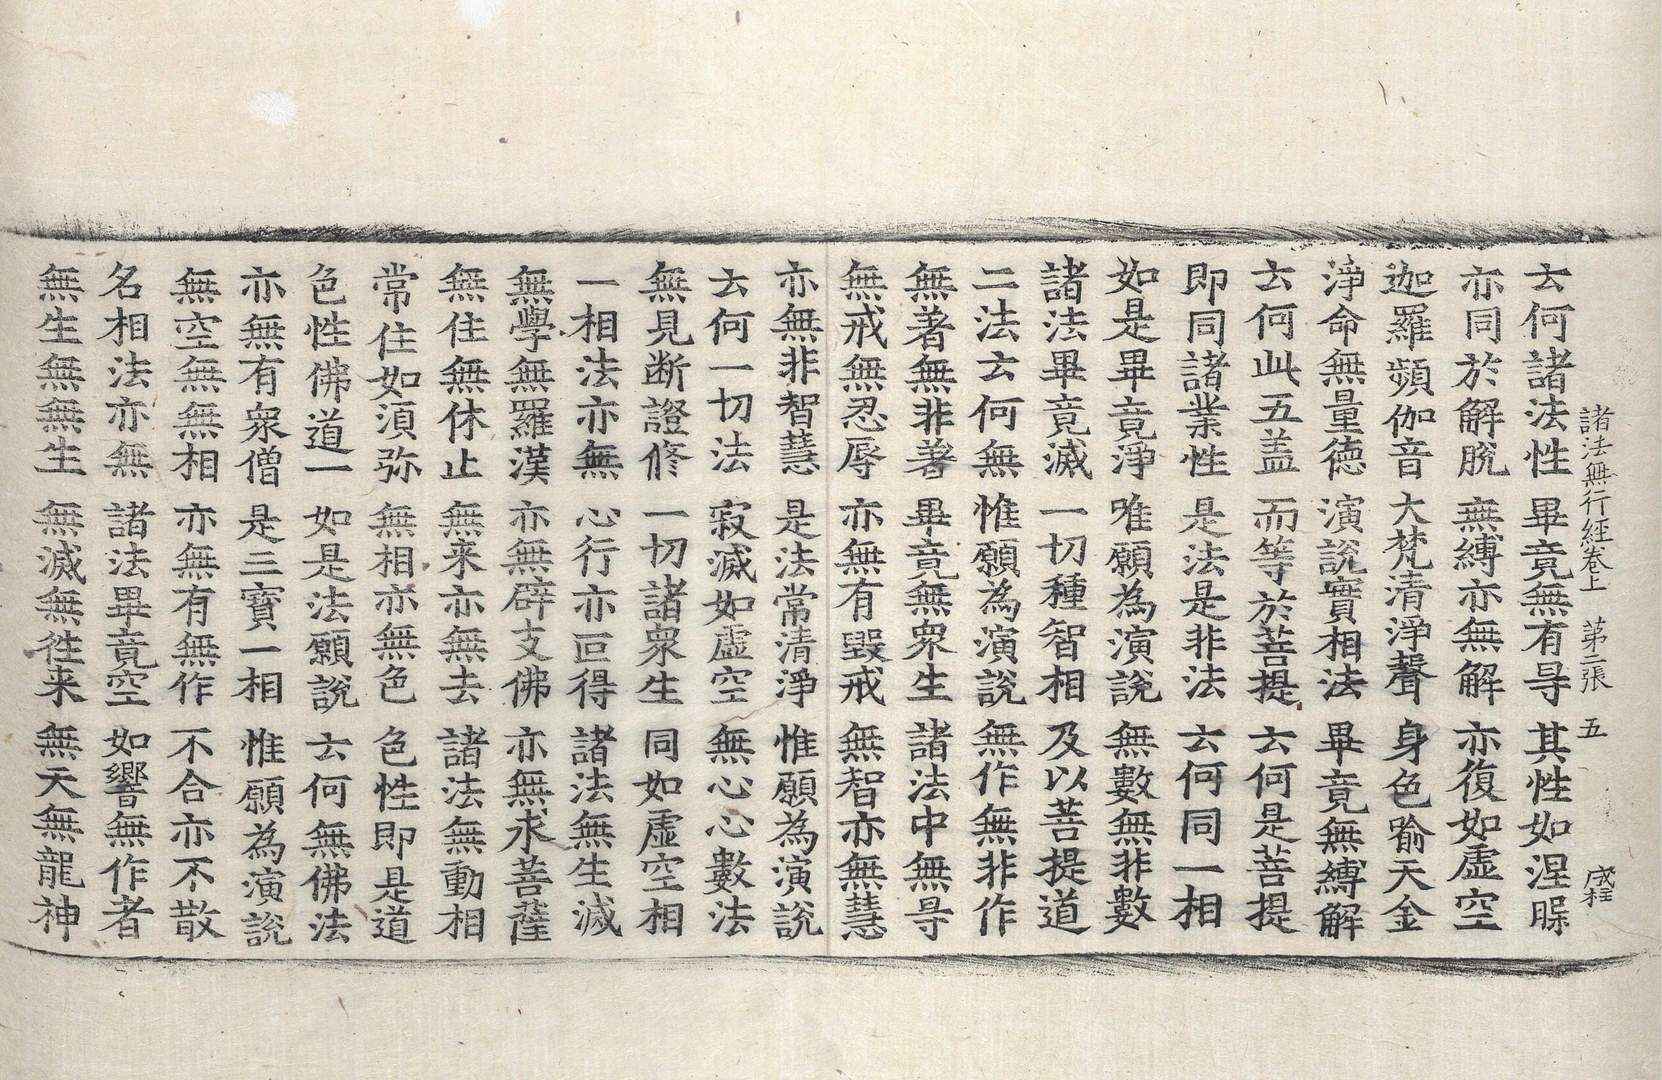 諸法無行經卷上　第二張　五　成程
去何諸法性　畢竟無有㝵　其性如涅𣵀
亦同於解脫　無縛亦無解　亦復如虛空
迦羅頻伽音　大梵清淨聲　身色喻天金
淨命無量德　演說實相法　畢竟無縛解
去何此五盖　而等於菩提　去何是菩提
即同諸業性　是法是非法　去何同一相
如是畢竟淨　唯願為演說　無數無非數
諸法畢竟滅　一切種智相　及以菩提道
二法去何無　惟願為演說　無作無非作
無著無非著　畢竟無眾生　諸法中無㝵
無戒無忍辱　亦無有毀戒　無智亦無慧
亦無非智慧　是法常清淨　惟願為演說
去何一切法　寂滅如虛空　無心心數法
無見断證修　一切諸眾生　同如虛空相
一相法亦無　心行亦叵得　諸法無生滅
無學無羅漢　亦無辟支佛　亦無求菩薩
無住無休止　無来亦無去　諸法無動相
常住如湏弥　無相亦無色　色性即是道
色性佛道一　如是法願說　去何無佛法
亦無有眾僧　是三寶一相　惟願為演說
無空無無相　亦無有無作　不合亦不散
名相法亦無　諸法畢竟空　如響無作者
無生無無生　無滅無徃来　無天無龍神